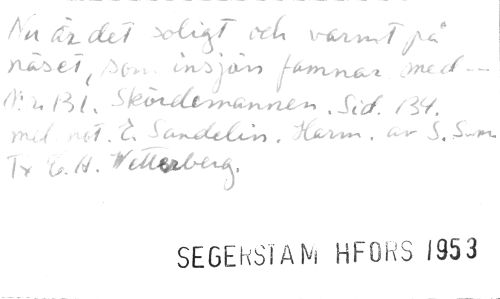 Nu är det soligt och varmt på
näset, som insjön famnar med —
N:r 131. Skördemannen. Sid. 134.
med not. E. Sandelin. Harm. av S. Sum
Tx C. H. Wetterberg.
SEGERSTAM HFORS 1953